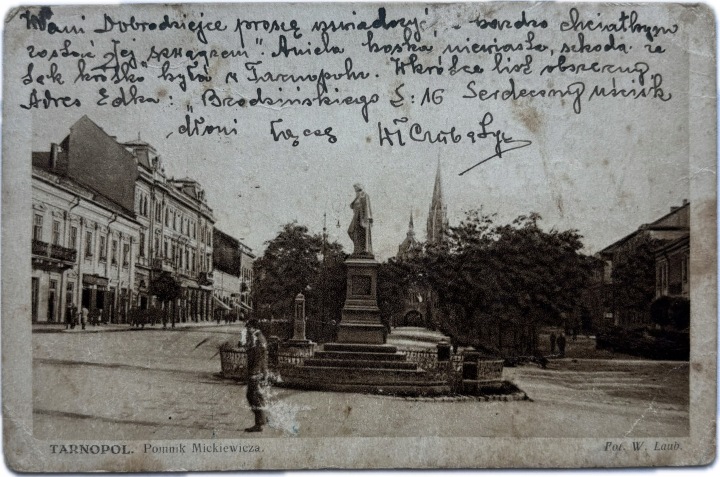 Pani Dobrodziejce proszę uświadczyć, - bardzo chciałbym
zostać Jej szwagrem". Aniela boska niewiasta, szkoda że
tak krótko była w Tarnopolu. Wkrótce list obszerny
Adres Edka: "Brodzińskiego L: 16 Serdeczny uścisk
dłoni łączę
TARNOPOL. Pomnik Mickiewicza.
Fot. W. Laub.